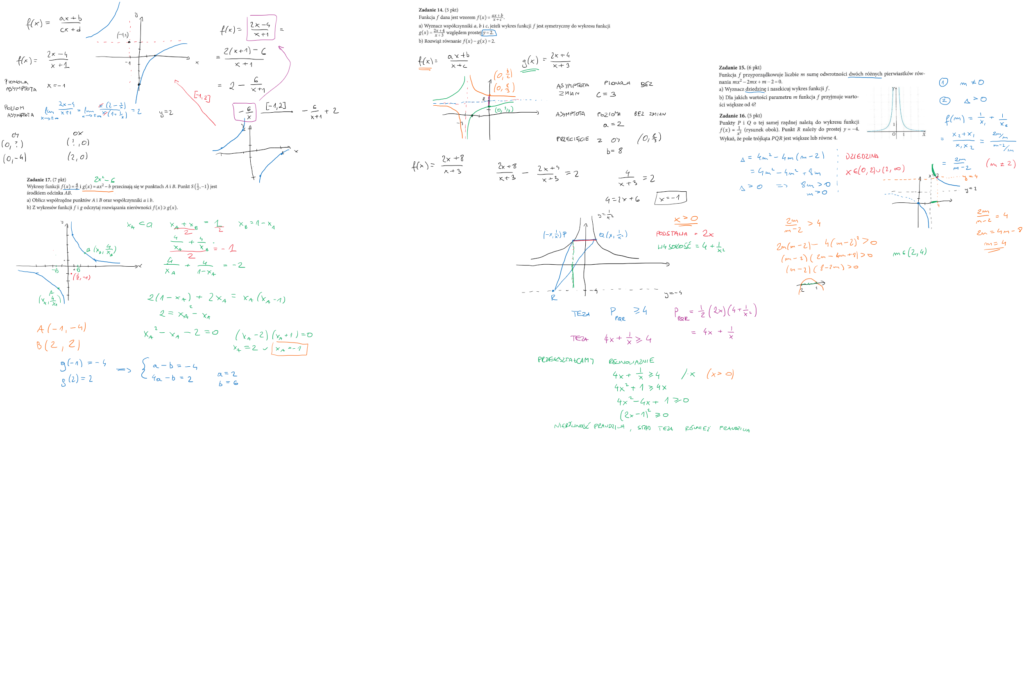 f(x) = ax+b / cx+d
f(x) = 2x-4 / x+1
PIONOWA ASYMPTOTA x = -1
POZIOM ASYMPTOTA
y=2
OY
(0, ?)
(0,-4)
OX
(?, 0)
(2, 0)
f(x) = 2x-4 / x+1 =
= 2(x+1) - 6 / x+1 =
= 2 - 6 / x+1
-6/x [-1,2] → -6/x+1 + 2
[-1,2]
Zadanie 17. (7 pkt)
2x² - 6
Wykresy funkcji f(x) = 4/x i g(x) = ax² - b przecinają się w punktach A i B. Punkt S(1/2, -1) jest
środkiem odcinka AB.
a) Oblicz współrzędne punktów A i B oraz współczynniki a i b.
b) Z wykresów funkcji f i g odczytaj rozwiązania nierówności f(x) ≥ g(x).
x_A < 0
x_A + x_B / 2 = 1/2
x_B = 1 - x_A
4/x_A + 4/x_B / 2 = -1
4/x_A + 4/1-x_A = -2
2(1-x_A) + 2x_A = x_A(x_A-1)
2 = x_A² - x_A
x_A² - x_A - 2 = 0
(x_A-2)(x_A+1)=0
x_A = 2 ∨ x_A = -1
A(-1,-4)
B(2, 2)
g(-1) = -4
g(2) = 2
⇒ { a-b = -4
4a-b = 2
a=2
b=6
Zadanie 14. (5 pkt)
Funkcja f dana jest wzorem f(x) = ax+b / x+c.
a) Wyznacz współczynniki a, b i c, jeżeli wykres funkcji f jest symetryczny do wykresu funkcji
g(x) = 2x+4 / x+3 względem prostej y = 2.
b) Rozwiąż równanie f(x) - g(x) = 2.
f(x) = ax+b / x+c
g(x) = 2x+4 / x+3
ASYMPTOTA PIONOWA BEZ ZMIAN
c = 3
ASYMPTOTA POZIOMA BEZ ZMIAN
a = 2
PRZECIĘCIE z OY (0, 8/3)
b = 8
f(x) = 2x+8 / x+3
2x+8 / x+3 - 2x+4 / x+3 = 2
4 / x+3 = 2
4 = 2x+6
x = -1
x > 0
PODSTAWA = 2x
WYSOKOŚĆ = 4 + 1/x²
y = -4
TEZA P_PQR ≥ 4
P_PQR = 1/2 (2x)(4 + 1/x²)
= 4x + 1/x
TEZA 4x + 1/x ≥ 4
PRZEKSZTAŁCAMY RÓWNOWAŻNIE
4x + 1/x ≥ 4 /·x (x>0)
4x² + 1 ≥ 4x
4x² - 4x + 1 ≥ 0
(2x-1)² ≥ 0
NIERÓWNOŚĆ PRAWDZIWA, STĄD TEZA RÓWNIEŻ PRAWDZIWA
Zadanie 15. (6 pkt)
Funkcja f przyporządkowuje liczbie m sumę odwrotności dwóch różnych pierwiastków rów-
nania mx² - 2mx + m - 2 = 0.
a) Wyznacz dziedzinę i naszkicuj wykres funkcji f.
b) Dla jakich wartości parametru m funkcja f przyjmuje warto-
ści większe od 4?
Zadanie 16. (5 pkt)
Punkty P i Q o tej samej rzędnej należą do wykresu funkcji
f(x) = 1/x² (rysunek obok). Punkt R należy do prostej y = -4.
Wykaż, że pole trójkąta PQR jest większe lub równe 4.
① m ≠ 0
② Δ > 0
f(m) = 1/x₁ + 1/x₂
= x₁+x₂ / x₁x₂ = 2m/m / m-2/m
= 2m / m-2 (m ≠ 2)
Δ = 4m² - 4m(m-2)
= 4m² - 4m² + 8m
Δ > 0 ⇒ 8m > 0
m > 0
DZIEDZINA
x ∈ (0,2) ∪ (2,∞)
y=4
y=2
2m / m-2 > 4
2m(m-2) - 4(m-2)² > 0
(m-2)(2m-4m+8) > 0
(m-2)(8-2m) > 0
m ∈ (2,4)
2m / m-2 = 4
2m = 4m - 8
m = 4